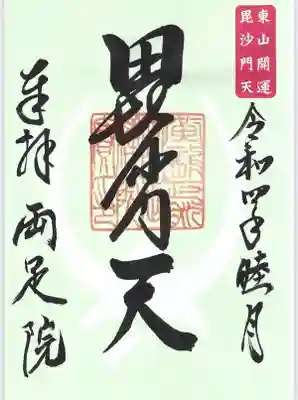 東山開運
毘沙門天
令和四年睦月
毘沙門天
奉拝 両足院